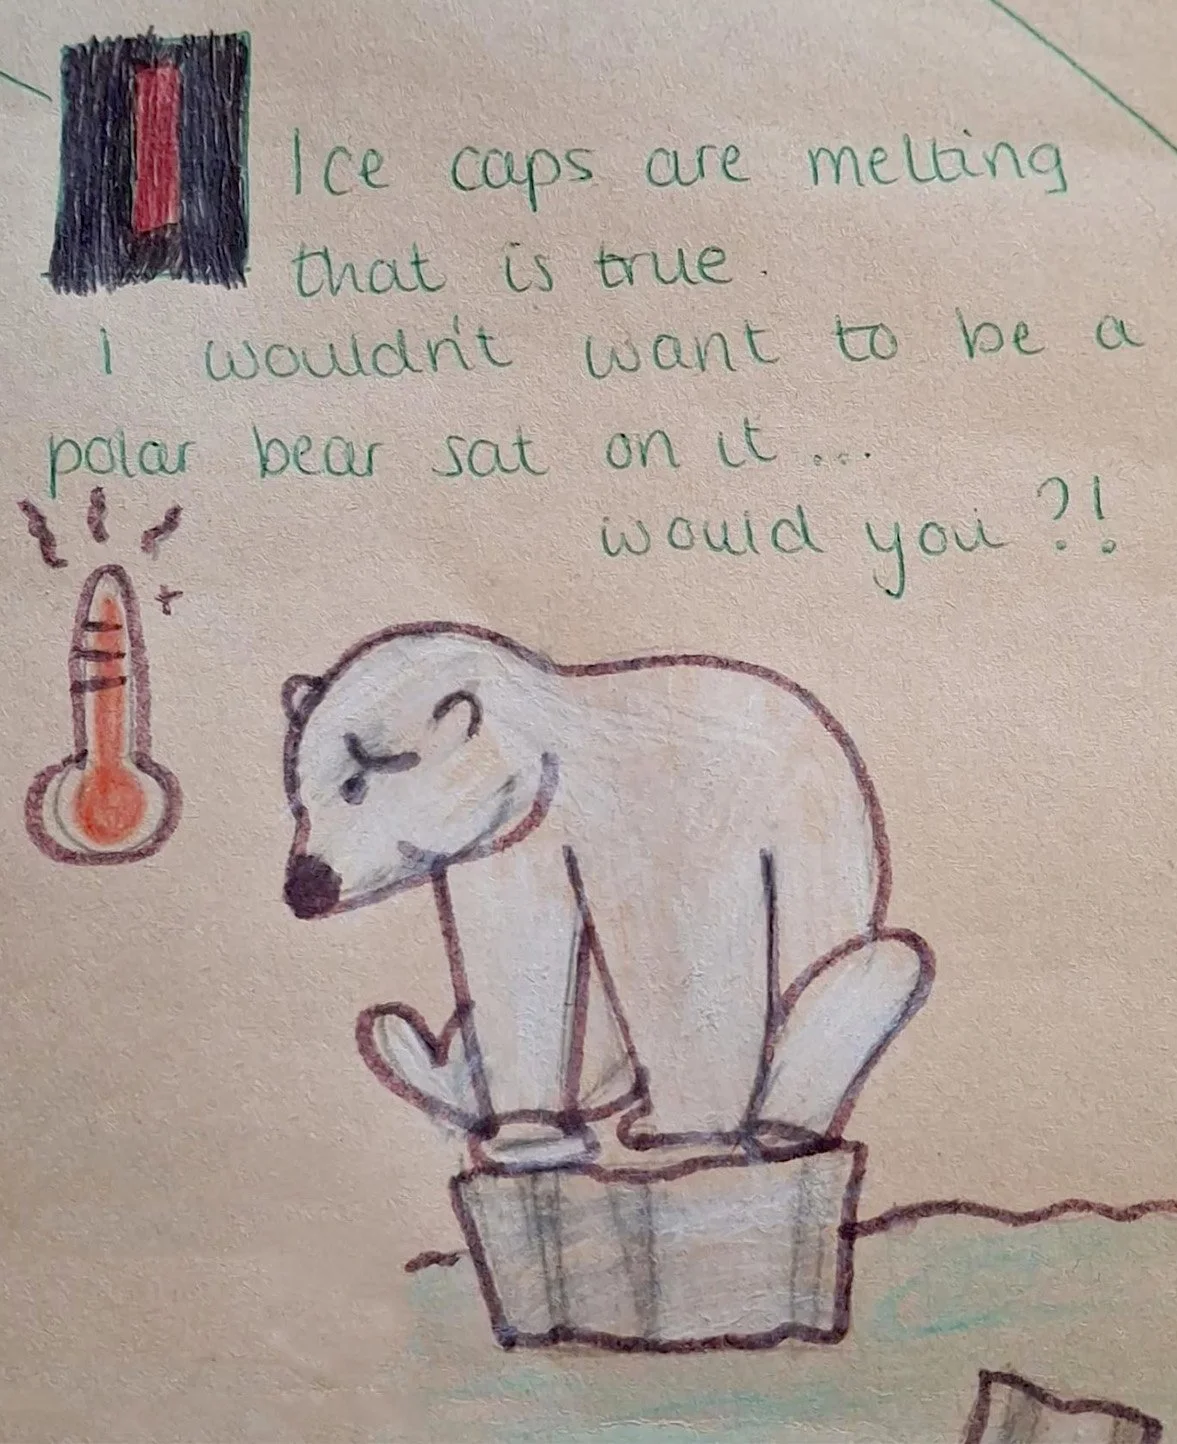 Ice caps are melting
that is true.
I wouldn't want to be a
polar bear sat on it...
would you?!